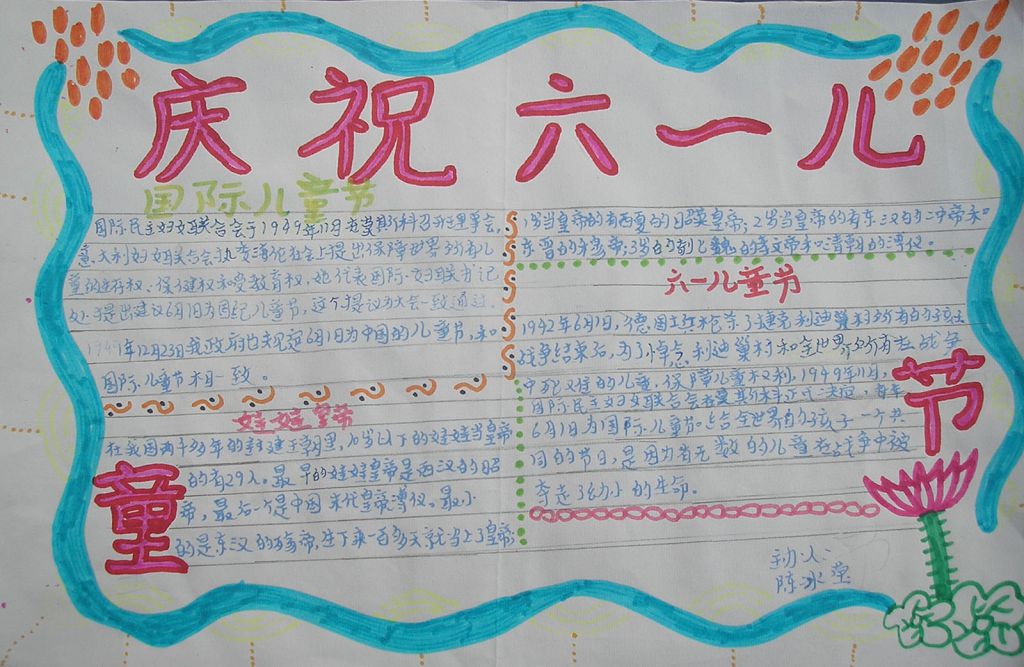 庆祝六一儿
童
节
国际儿童节
国际民主妇女联合会于1949年11月在莫斯科召开理事会,
意大利妇女联合会执委在会上提出保障世界所有儿
童的生存权、保健权和受教育权。她代表国际妇联书记
处提出建议6月1日为国际儿童节,这个提议为大会一致通过。
1949年12月23日我政府也规定6月1日为中国的儿童节,和
国际儿童节相一致。
娃娃皇帝
在我国两千多年的封建王朝里,10岁以下的娃娃当皇帝
的有29人。最早的娃娃皇帝是西汉的昭
帝,最后一个是中国末代皇帝溥仪。最小
的是东汉的殇帝,生下来一百多天就当上了皇帝;
1岁当皇帝的有西夏的毅皇帝;2岁当皇帝的有东汉的冲帝和
东晋的穆帝;3岁的则是北魏的孝文帝和清朝的溥仪。
六一儿童节
1942年6月1日,德国法西斯枪杀了捷克利迪策村所有的
战争结束后,为了悼念利迪策村和全世界所有在战争
中死难的儿童,保障儿童权利,1949年11月,
国际民主妇女联合会在莫斯科正式决定,每年
6月1日为国际儿童节。给全世界的孩子一个共
同的节日,是因为有无数的儿童在战争中被
夺走了幼小的生命。
主办人:
陈冰莹